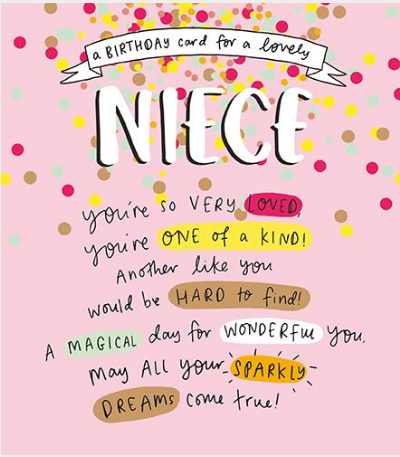 a BIRTHDAY card for a lovely
NIECE
you're so VERY LOVED,
you're ONE of a KIND!
Another like you
would be HARD to find!
A MAGICAL day for WONDERFUL you,
may ALL your SPARKLY
DREAMS come true!